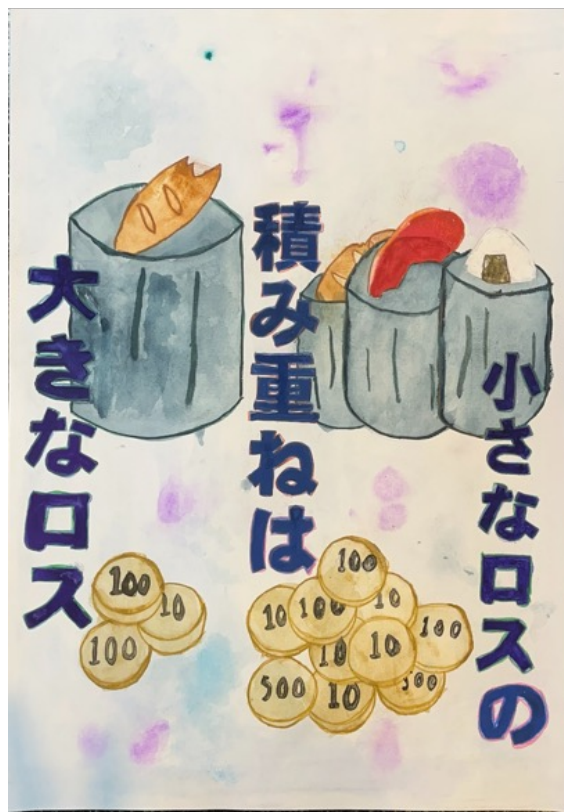 小さなロスの
積み重ねは
大きなロス
100
10
100
100
10
100
10
10
10
100
500
10